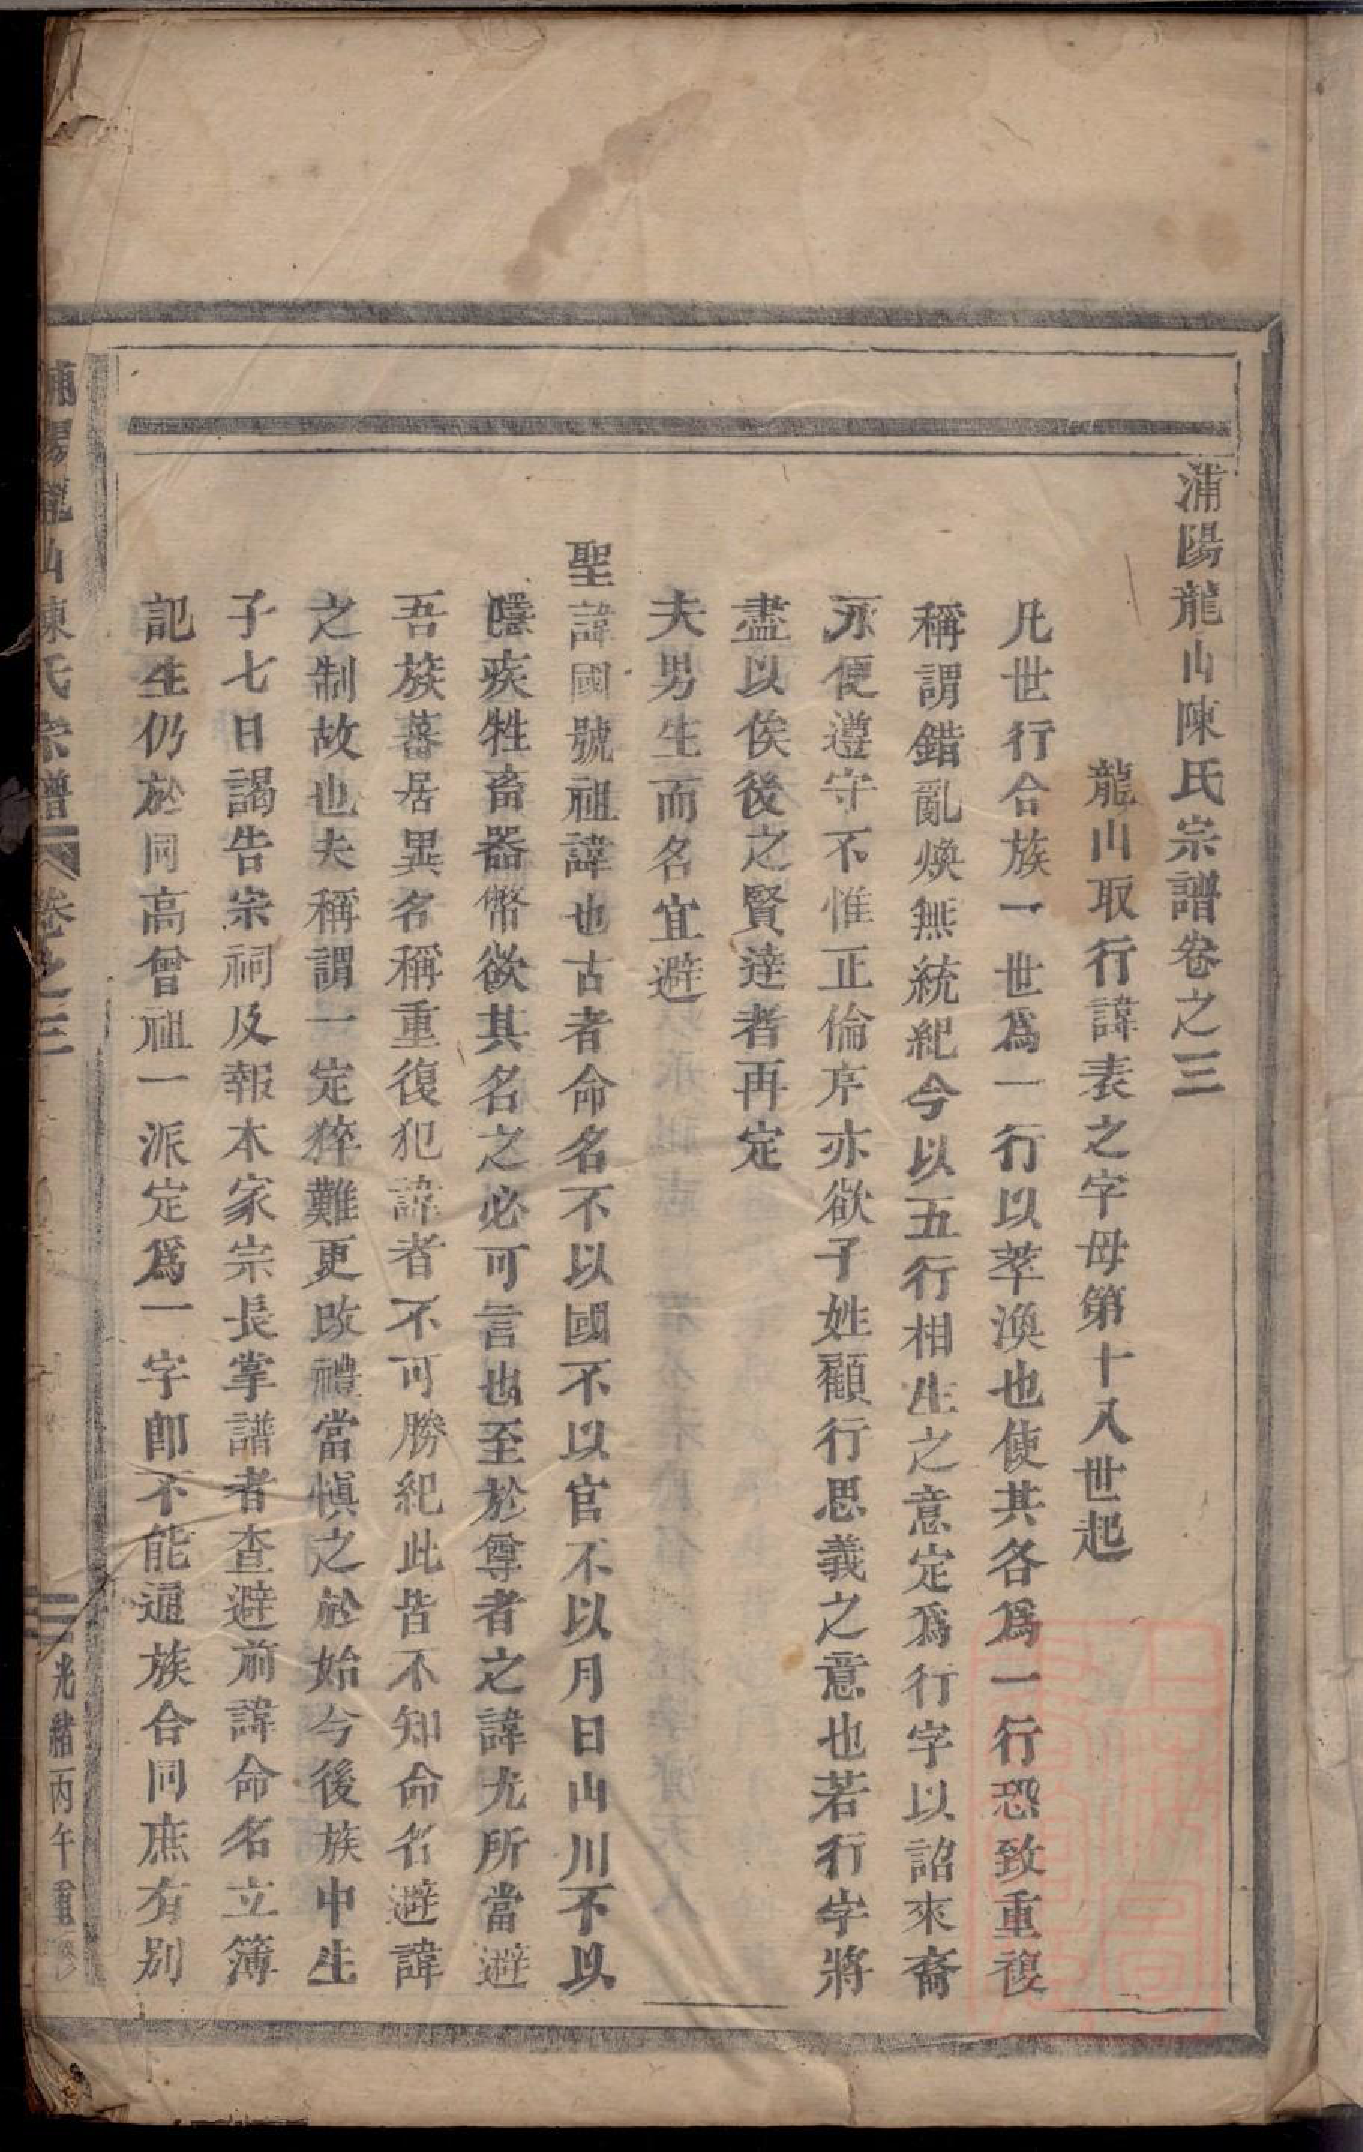 浦陽龍山陳氏宗譜卷之三
龍山取行諱表之字母第十八世起
凡世行合族一世爲一行以萃渙也使其各爲一行恐致重複
稱謂錯亂煥無統紀今以五行相生之意定爲行字以詔來裔
永便遵守不惟正倫序亦欲子姓顧行思義之意也若行字將
盡以俟後之賢達者再定
夫男生而名宜避
聖諱國號祖諱也古者命名不以國不以官不以月日山川不以
隱疾牲畜器幣欲其名之必可言也至於尊者之諱尤所當避
吾族蕃居異名稱重復犯諱者不可勝紀此皆不知命名避諱
之制故也夫稱謂一定猝難更改禮當慎之於始今後族中生
子七日謁告宗祠及報本家宗長掌譜者查避前諱命名立簿
記生仍於同高曾祖一派定爲一字即不能通族合同庶有別
浦陽龍山陳氏宗譜 卷之三 光緒丙午重修